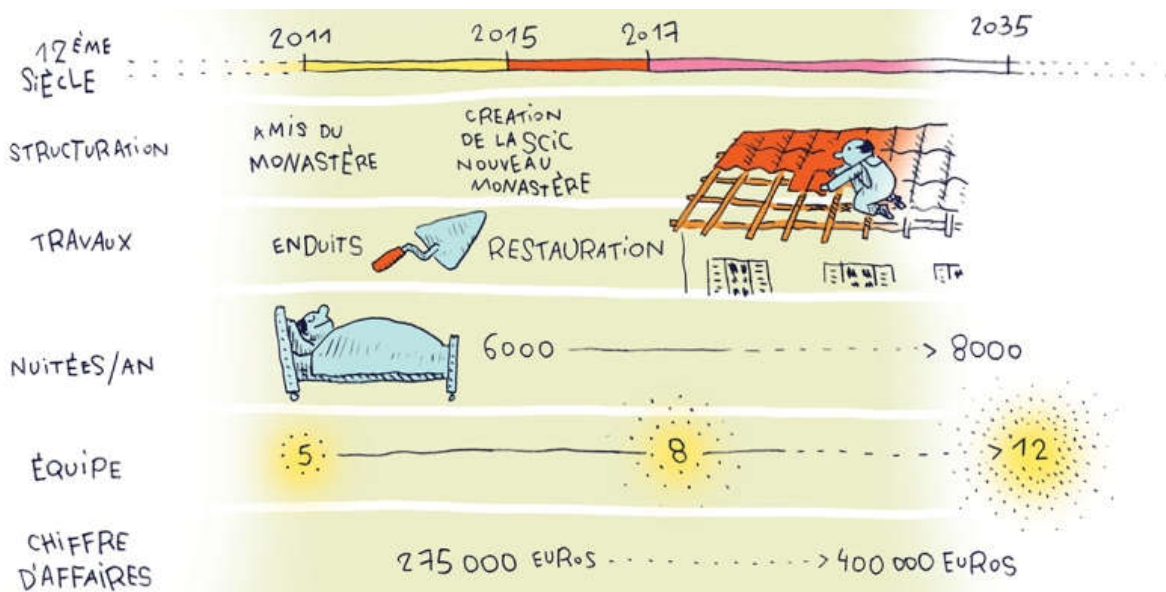 12ÈME
SIÈCLE
2011
2015
2017
2035
STRUCTURATION
AMIS DU
MONASTÈRE
CREATION
DE LA SCIC
NOUVEAU
MONASTÈRE
TRAVAUX
ENDUITS
RESTAURATION
NUITÉES/AN
6000
8000
ÉQUIPE
5
8
12
CHIFFRE
D'AFFAIRES
275 000 EUROS
400 000 EUROS